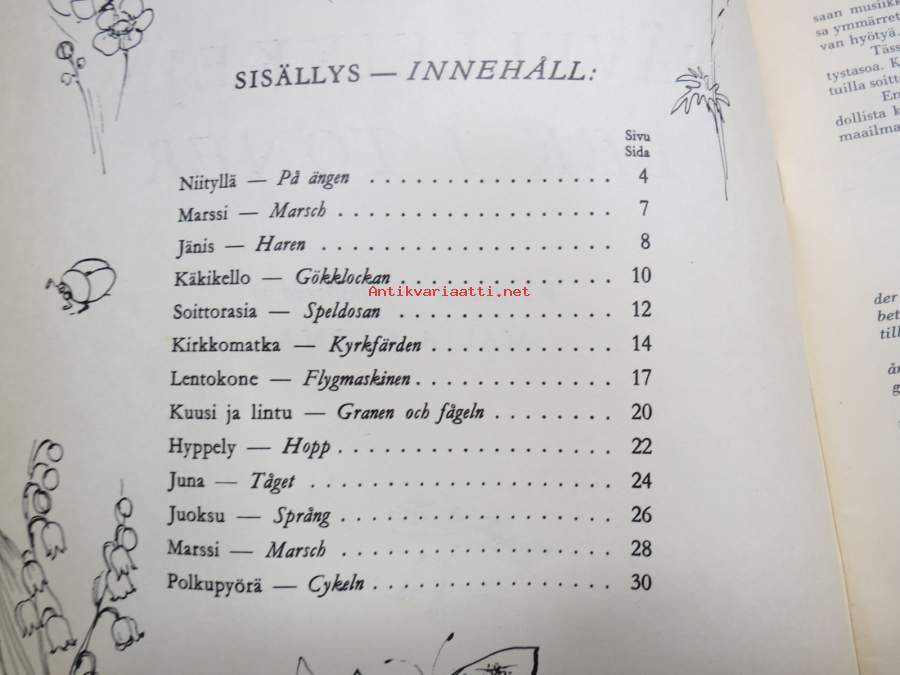 SISÄLLYS — INNEHÅLL:
Sivu
Sida
Niityllä — På ängen . . . . . . . . . . . . . . . . . 4
Marssi — Marsch . . . . . . . . . . . . . . . . . . . 7
Jänis — Haren . . . . . . . . . . . . . . . . . . . . 8
Käkikello — Gökklockan . . . . . . . . . . . . . . . 10
Antikvariaatti.net
Soittorasia — Speldosan . . . . . . . . . . . . . . . 12
Kirkkomatka — Kyrkfärden . . . . . . . . . . . . . 14
Lentokone — Flygmaskinen . . . . . . . . . . . . . . 17
Kuusi ja lintu — Granen och fågeln . . . . . . . . 20
Hyppely — Hopp . . . . . . . . . . . . . . . . . . . 22
Juna — Tåget . . . . . . . . . . . . . . . . . . . . . 24
Juoksu — Språng . . . . . . . . . . . . . . . . . . . 26
Marssi — Marsch . . . . . . . . . . . . . . . . . . . 28
Polkupyörä — Cykeln . . . . . . . . . . . . . . . . . 30
saan musiikk
sa ymmärret
van hyötyä.
Täss
tystasoa. K
tuilla soitt
En
dollista k
maailma
der
bet
till
år
g